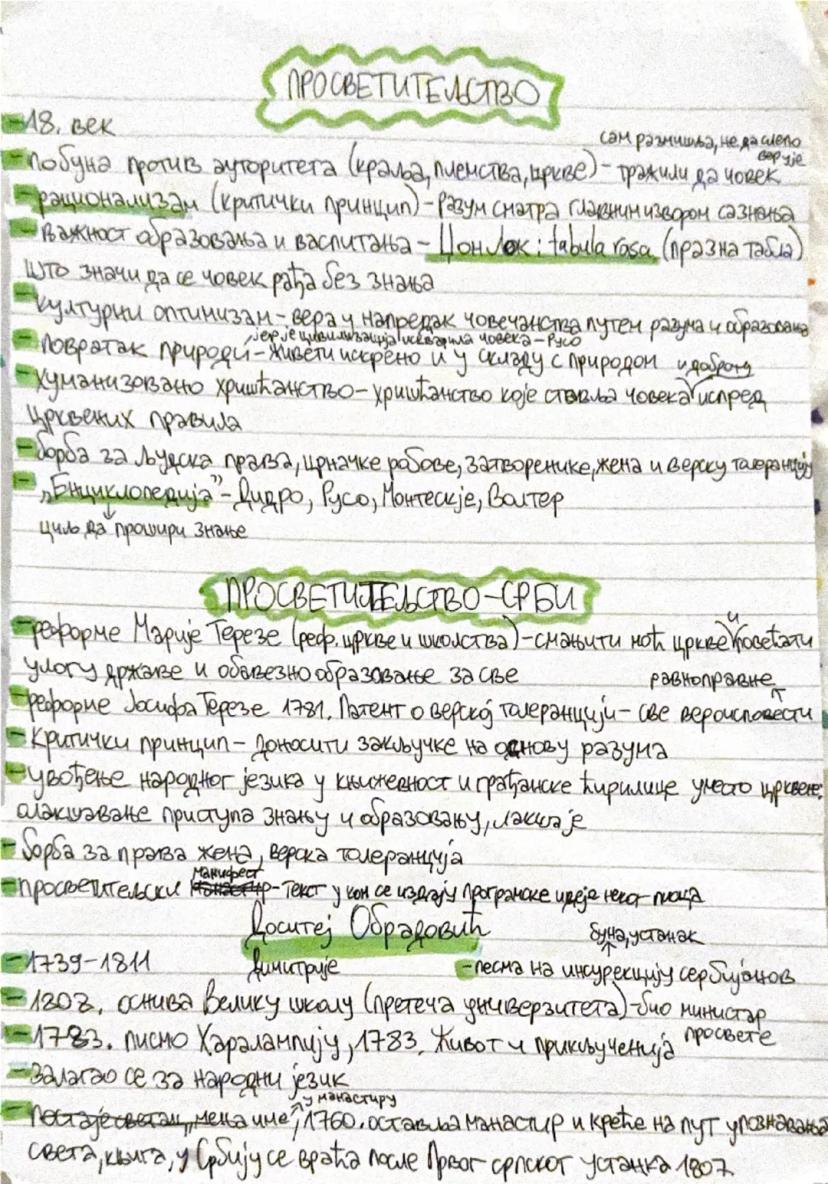 ПРОСВЕТИТЕЉСТВО
-18. век
сам размишља, не да слепо верује
-побуна против ауторитета (краља, племства, цркве) - тражили да човек
-рационализам (критички принцип) - разум сматра главним извором сазнања
-важност образовања и васпитања - Џон Лок: tabula rosa (празна табла)
што значи да се човек рађа без знања
-културни оптимизам - вера у напредак човечанства путем разума и образовања
јер је цивилизација искварила човека - Русо
-повратак природи - живети искрено и у складу с природом
и доброту
-хуманизовано хришћанство - хришћанство које ставља човека испред
црквених правила
-борба за људска права, црначке робове, затворенике, жена и верску толеранцију
-„Енциклопедија" - Дидро, Русо, Монтескје, Волтер
циљ да прошири знање
ПРОСВЕТИТЕЉСТВО-СРБИ
-реформе Марије Терезе (реф. цркве и школства) - смањити моћ цркве и повећати
улогу државе и обавезно образовање за све
равноправне
-реформе Јосифа Терезе 1781. Патент о верској толеранцији - све вероисповести
-Критички принцип - доносити закључке на основу разума
-увођење народног језика у књижевност и грађанске ћирилице уместо црквене,
олакшавање приступа знању и образовању, лакша је
-борба за права жена, верска толеранција
-просветитељски манифест - текст у ком се издају програмске идеје неког писца
Доситеј Обрадовић
буна, устанак
-1739-1811
Димитрије
-песма на инсурекцију сербијанов
-1808. оснива Велику школу (претеча универзитета) - био министар
просвете
-1783. писмо Харалампију, 1783. Живот и прикљученија
-залагао се за народни језик
у манастиру
-постаје светац, мења име, 1760. оставља манастир и креће на пут упознавања
света, књига, у Србију се враћа после Првог српског устанка 1807.